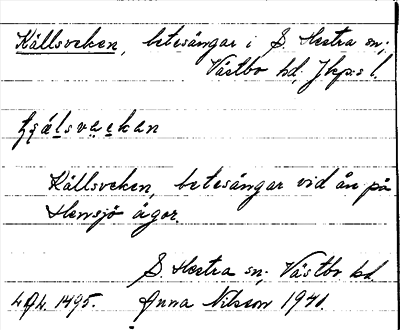 Källsveken, betesängar i S. Hestra sn;
Västbo hd, Jkps l.
Källsveken, betesängar vid ån på
Hemsjö ägor.
S. Hestra sn; Västbo hd.
1495. Anna Nilsson 1941.